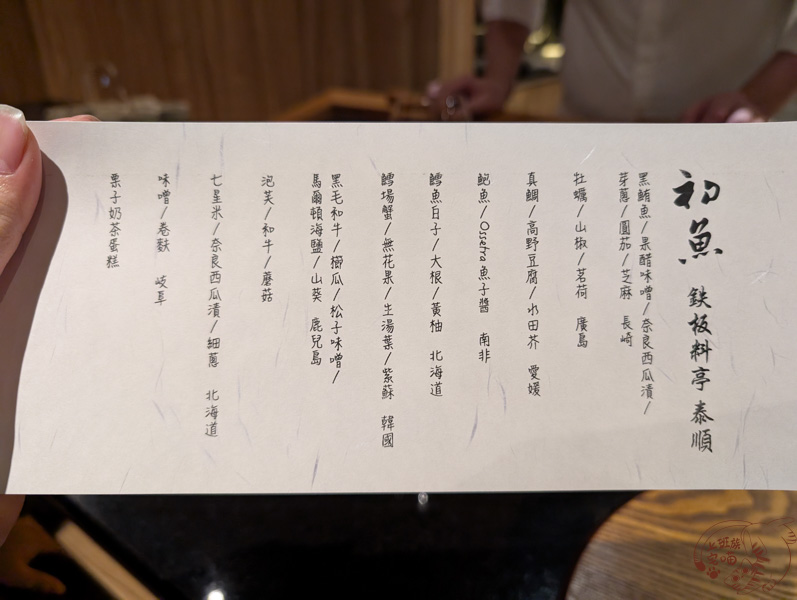 初魚 鉄板料亭 泰順
黑鮪魚/果醋味噌/奈良西瓜漬/
芽蔥/圓茄/芝麻 長崎
牡蠣/山椒/茗荷 廣島
真鯛/高野豆腐/水田芥 愛媛
鮑魚/Ossetra魚子醬 南非
鱈魚白子/大根/黃柚 北海道
鱈場蟹/無花果/生湯葉/紫蘇 韓國
黑毛和牛/櫛瓜/松子味噌/
馬爾頓海鹽/山葵 鹿兒島
泡芙/和牛/蘑菇
七星米/奈良西瓜漬/細蔥 北海道
味噌/卷麩 岐阜
栗子奶茶蛋糕